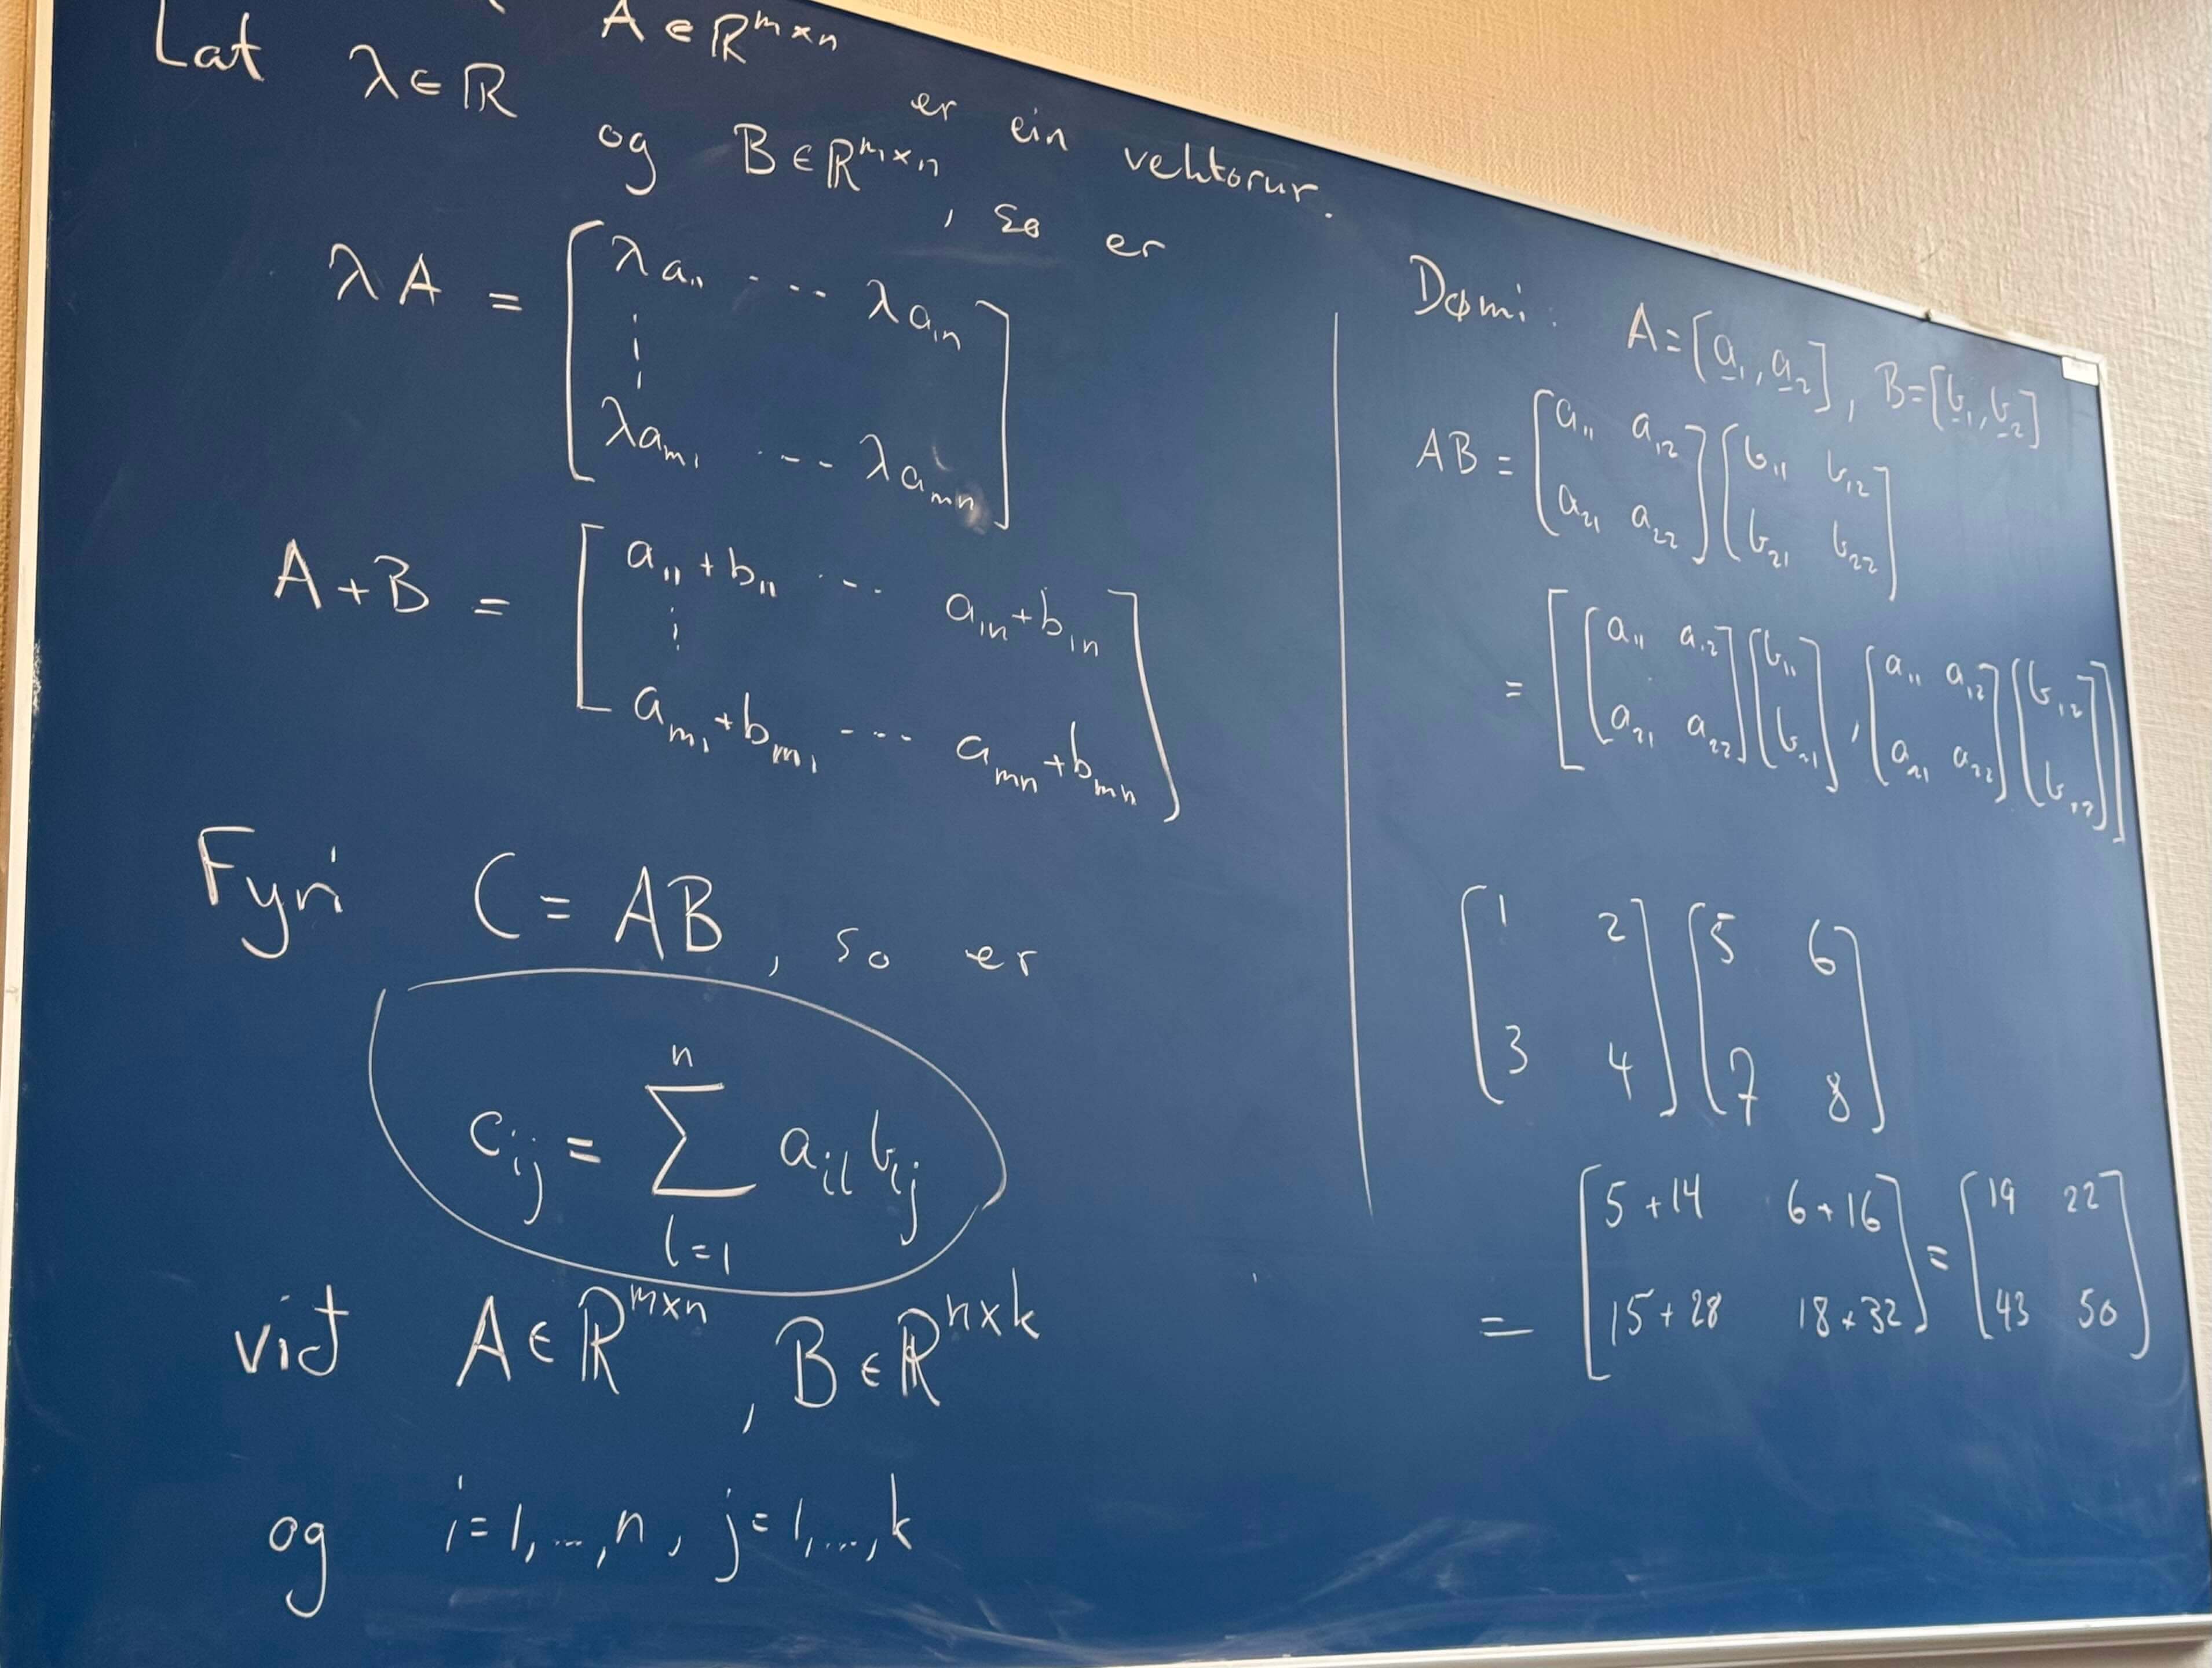 A ∈ ℝ^{m×n} er ein vektorur.
Lat λ ∈ ℝ og B ∈ ℝ^{m×n}, so er
λA = [λa_{11} ... λa_{1n} ⋮ λa_{m1} ... λa_{mn}]
A+B = [a_{11}+b_{11} ... a_{1n}+b_{1n} ⋮ a_{m1}+b_{m1} ... a_{mn}+b_{mn}]
Fyri C = AB, so er
c_{ij} = ∑_{l=1}^{n} a_{il} b_{lj}
við A ∈ ℝ^{m×n}, B ∈ ℝ^{n×k}
og i=1,...,n, j=1,...,k
Dømi: A=[a_1, a_2], B=[b_1, b_2]
AB = [a_{11} a_{12} ; a_{21} a_{22}] [b_{11} b_{12} ; b_{21} b_{22}]
= [[a_{11} a_{12} ; a_{21} a_{22}] [b_{11} ; b_{21}], [a_{11} a_{12} ; a_{21} a_{22}] [b_{12} ; b_{22}]]
[1 2 ; 3 4] [5 6 ; 7 8]
= [5+14 6+16 ; 15+28 18+32] = [19 22 ; 43 50]